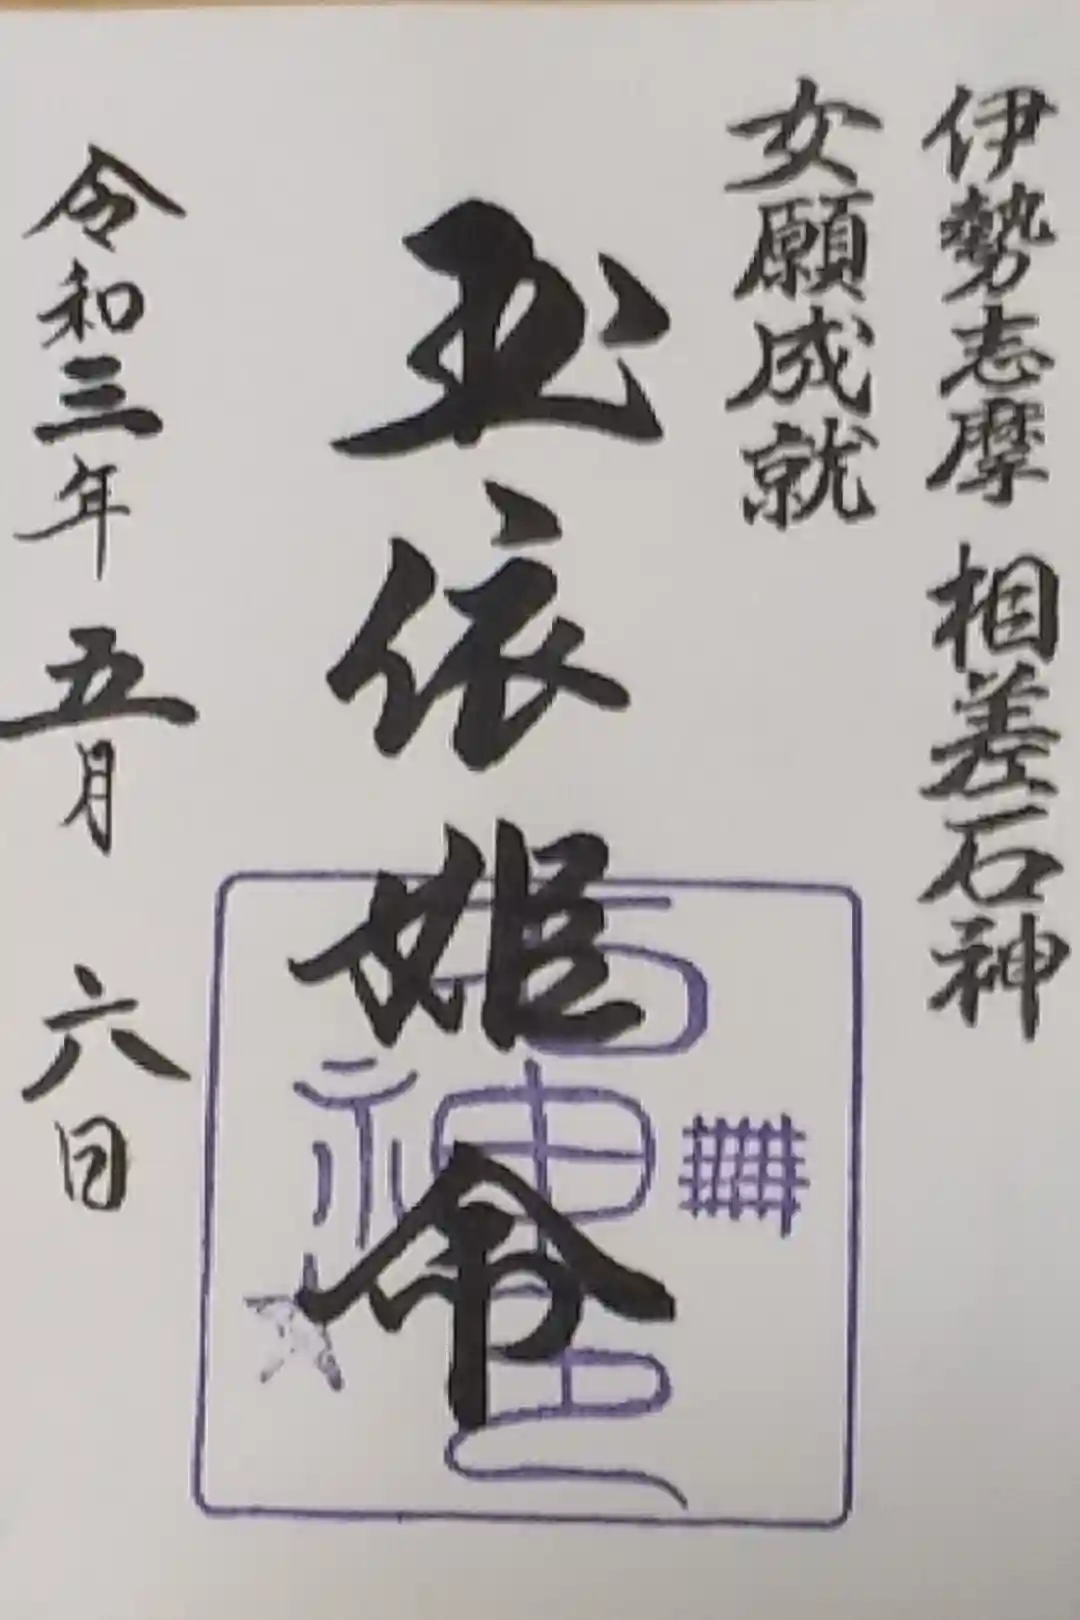 伊勢志摩 相差石神
女願成就
玉依姫命
令和三年 五月 六日